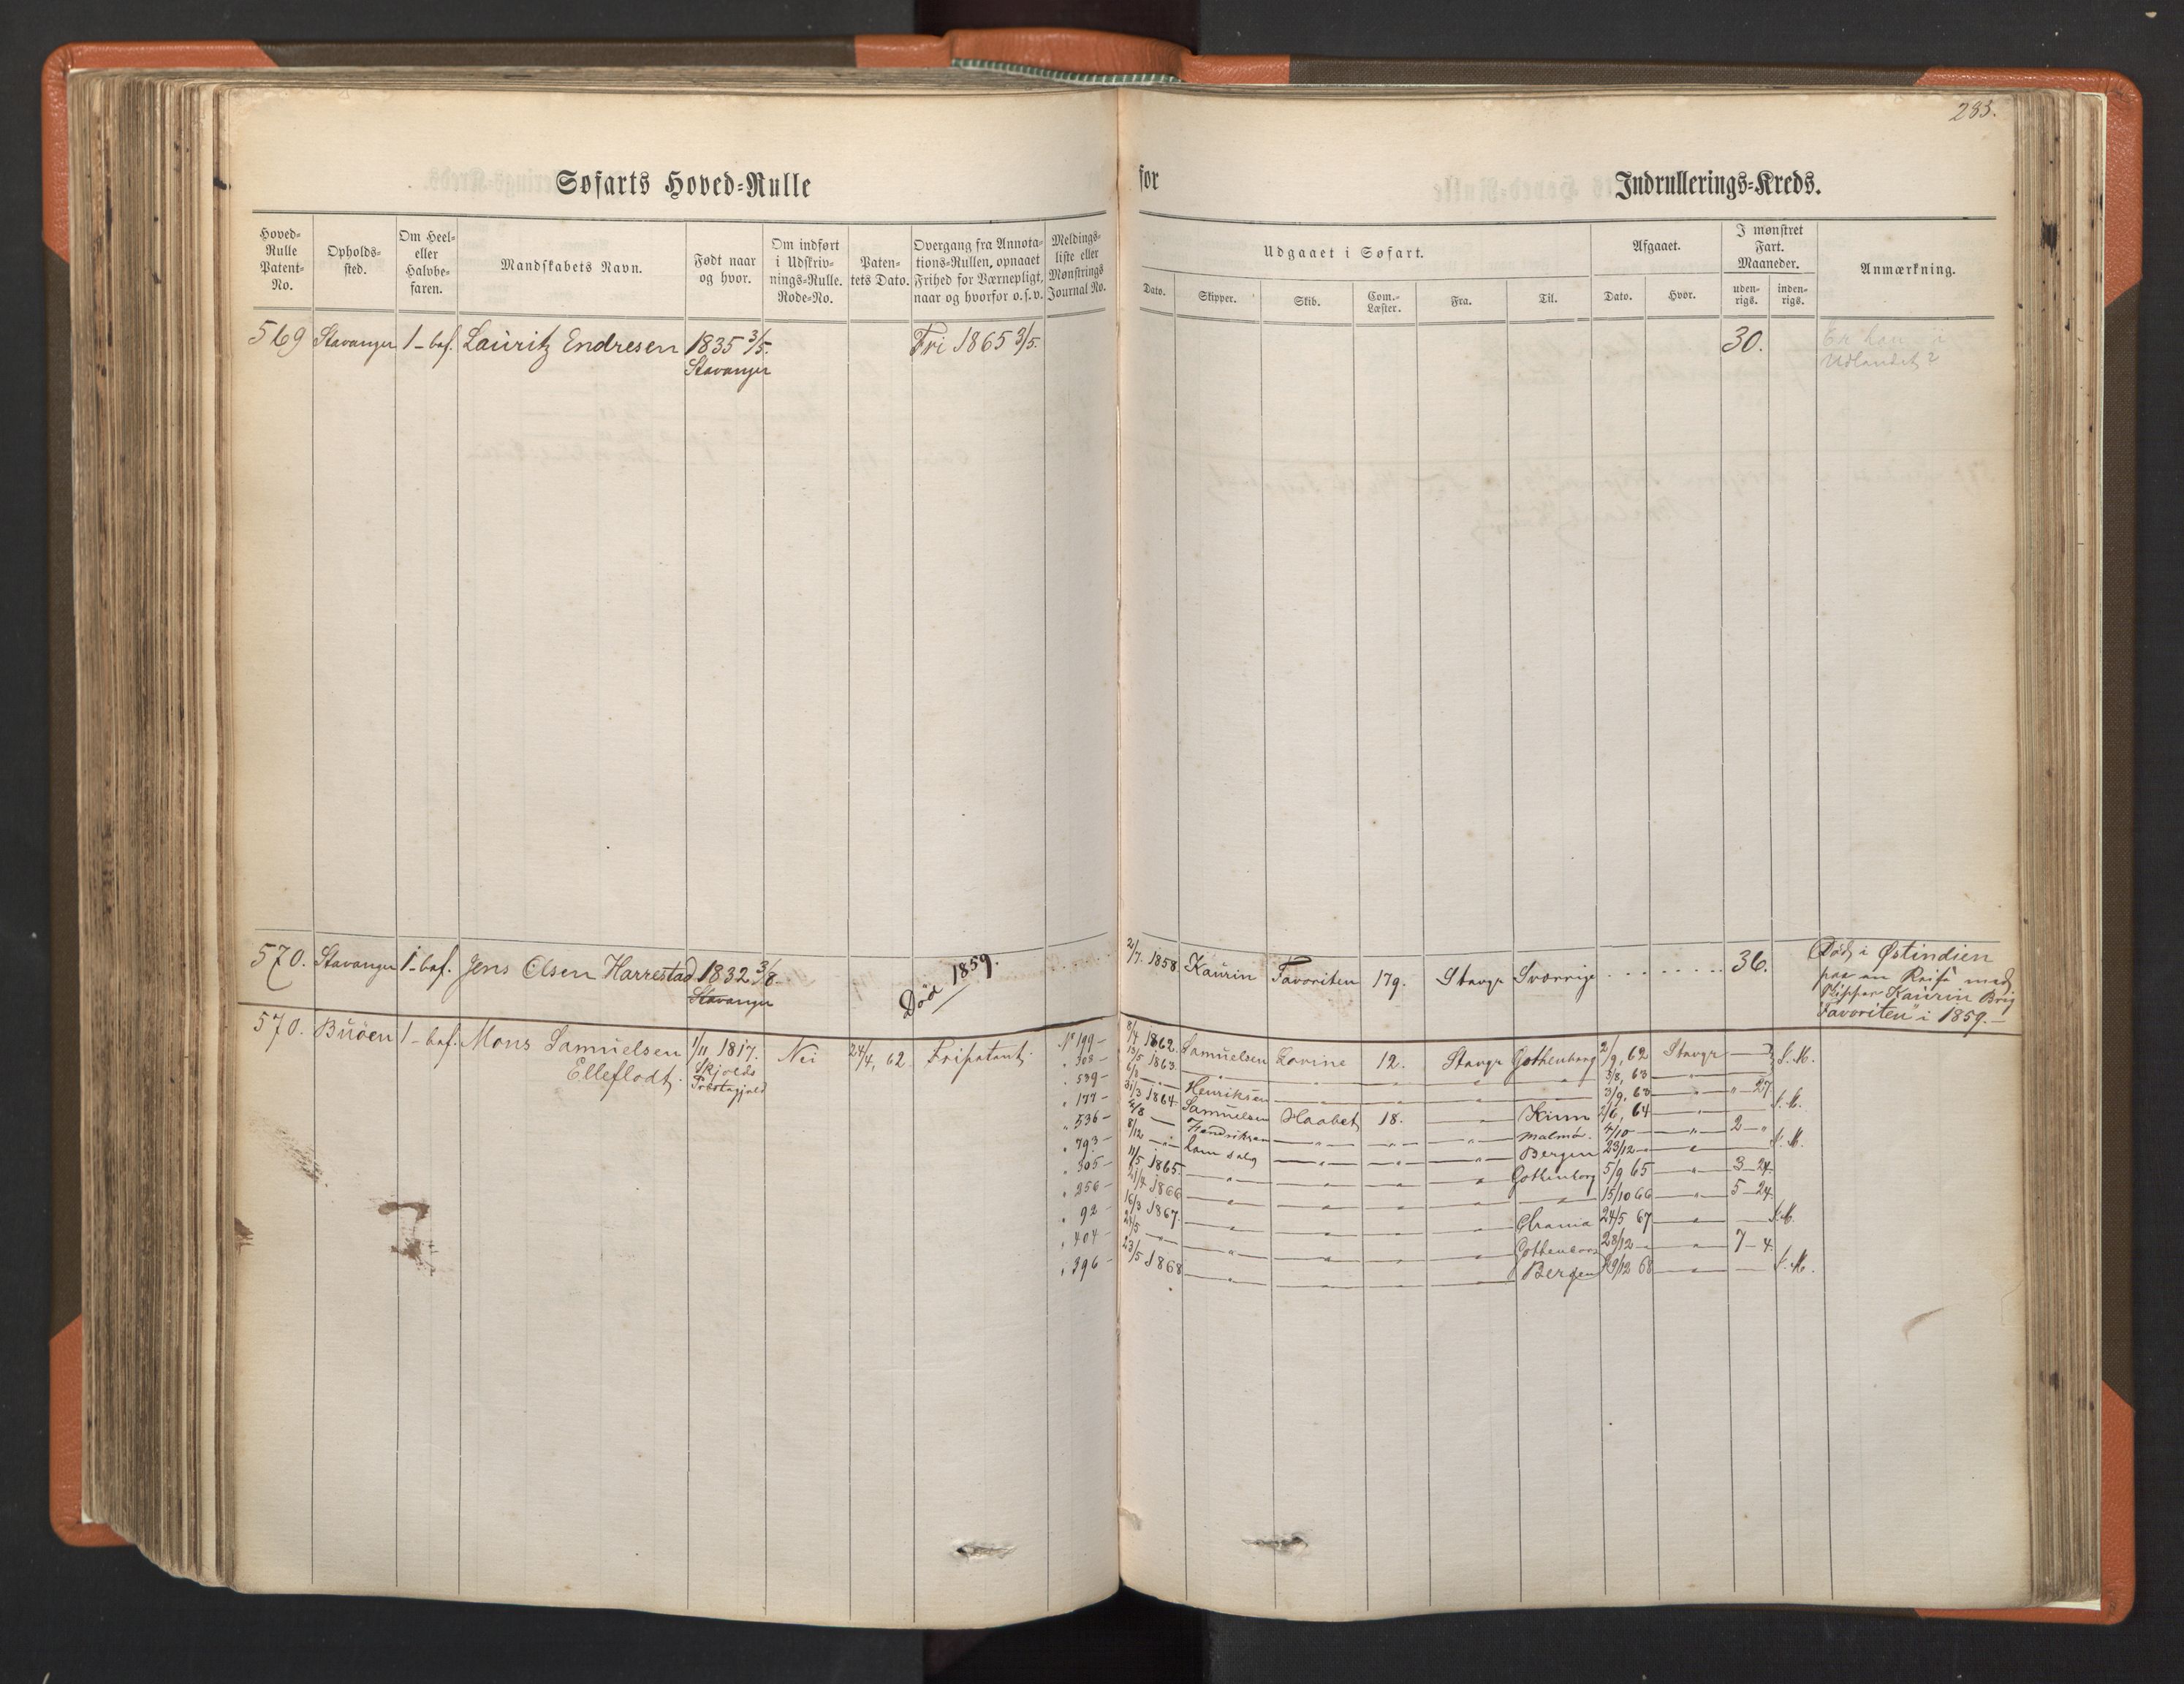 283.
Søfarts Hoved=Rulle for Indrullerings=Kreds.
Hoved=Rulle Patent=No.
Opholds=sted.
Om Heel= eller Halvbe=faren.
Mandskabets Navn.
Født naar og hvor.
Om indført i Udskriv=nings=Rulle. Rode=No.
Paten=tets Dato.
Overgang fra Annota=tions=Rullen, opnaaet Frihed for Værnepligt, naar og hvorfor o.s.v.
Meldings=liste eller Mønstrings Journal No.
Udgaaet i Søfart.
Dato.
Skipper.
Skib.
Com.=Læster.
Fra.
Til.
Afgaaet.
Dato.
Hvor.
I mønstret Fart. Maaneder.
uden=rigs.
inden=rigs.
Anmærkning.
569 Stavanger 1-bef. Lauritz Endresen 1835 3/5. Fri 1865 3/5. 30. Er han i
Stavanger Udlandet?
570. Stavanger 1-bef. Jens Olsen Harrestad 1832 3/8 Død 1859. 2/7. 1858 Kaurin Favoriten 179. Stavgr Sverrige 36. Død i Østindien
Stavanger paa en Reise med
Skipper Kaurin Brig
Favoriten i 1859.
570. Buöen 1-bef. Mons Samuelsen 1/11 1817. Nei 24/4, 62. Fripatent. No 199 8/4 1862. Samuelsen Lovine 12. Stavgr Gothenborg 2/9, 62 Stavgr
Elleflodt. Skjolds
Præstegjeld
" 308 1863 3/8, 63
" 539 Henriksen 3/9, 63 " 27
" 177 31/3 1864 Samuelsen Haabet 18. 2/6, 64
" 536 Hendriksen Malmø. 4/10 2
" 793 8/12 Bergen 23/12
" 305 11/5 1865. Gothenborg 5/9 65 3-24
" 256 21/4 1866 15/10 66 5-24
" 92 16/3 1867. 24/5 67
" 404 Gothenborg 28/12 7-4.
" 396 23/5 1868 Bergen 29/12 68